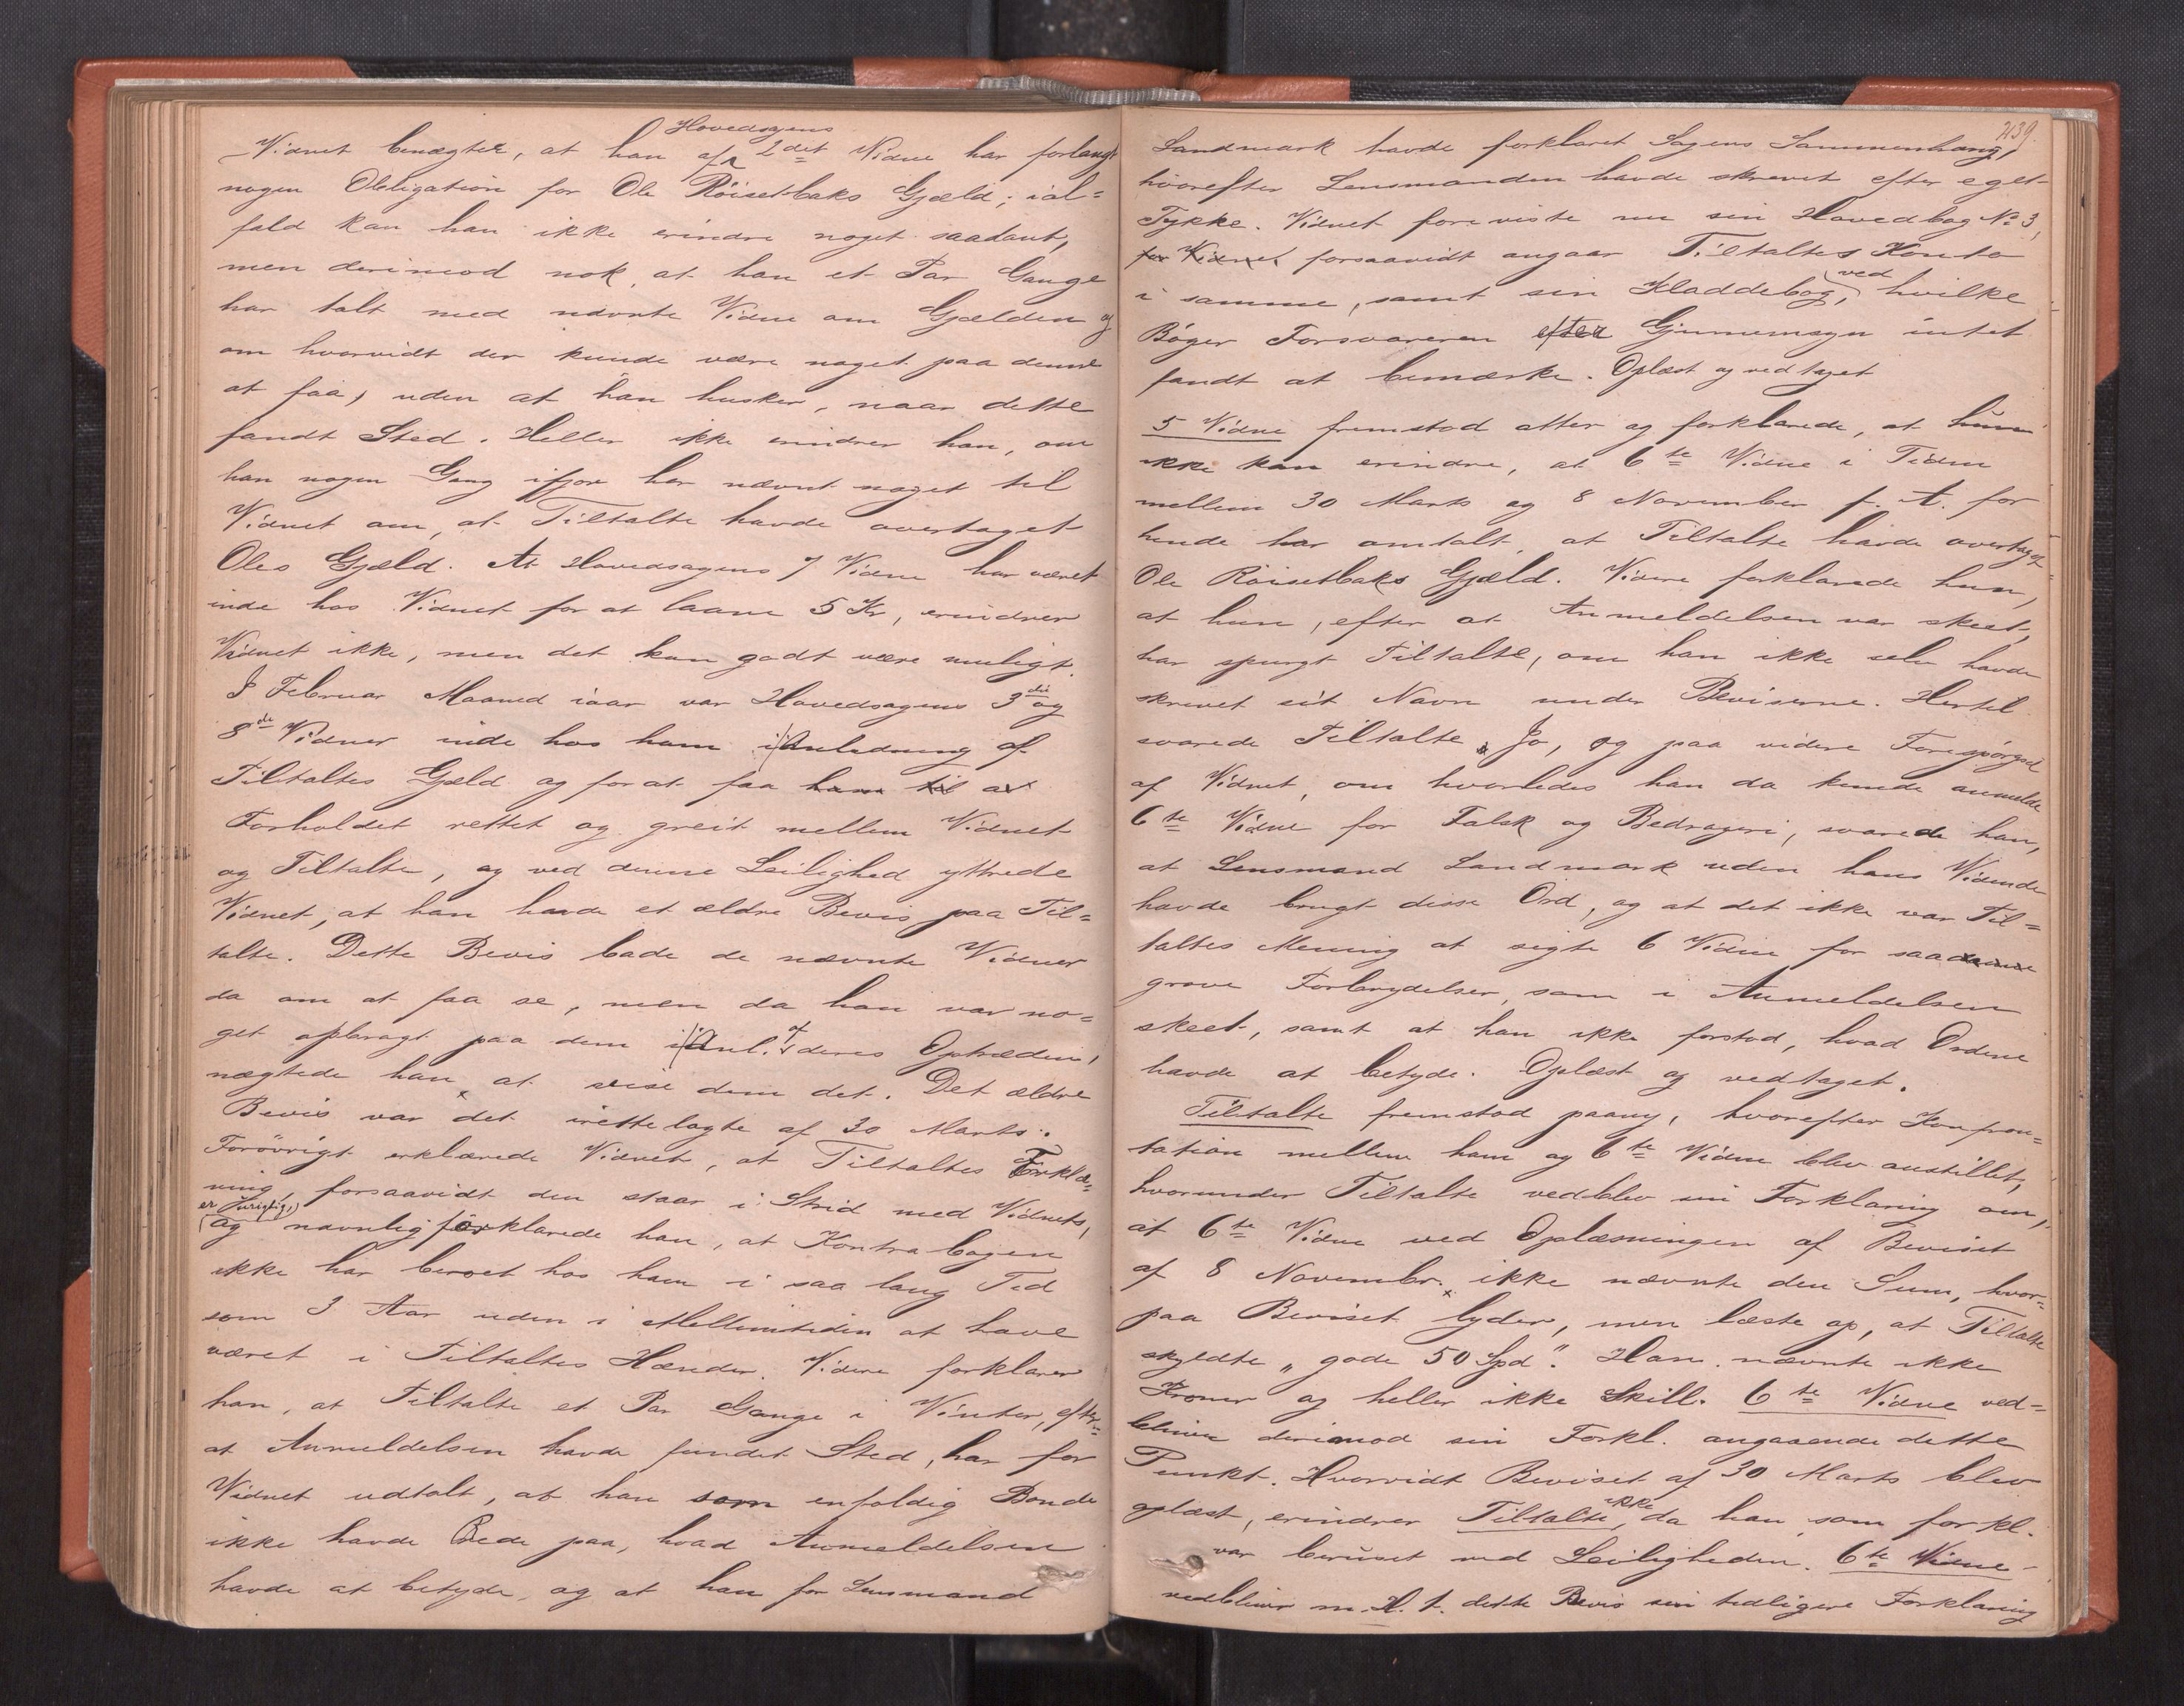 Vidnet benægter, at han af Hovedsagens 2det Vidne har forlangt
nogen Obligation for Ole Röisetbaks Gjæld; ial=
fald kan han ikke erindre noget saadant,
men derimod nok, at han et Par Gange
har talt med nævnte Vidne om Gjælden og
om hvorvidt der kunde være noget paa denne
at faa, uden at han husker, naar dette
fandt Sted. Heller ikke erindrer han, om
han nogen Gang ifjor har nævnt noget til
Vidnet om, at Tiltalte havde overtaget
Oles Gjæld. At Hovedsagens 7 Vidne har været
inde hos Vidnet for at laane 5 Kr, erindrer
Vidnet ikke, men det kan godt være muligt.
I Februar Maaned iaar var Hovedsagens 3die og
8de Vidner inde hos ham i Anledning af
Tiltaltes Gjæld og for at faa ham til at
Forholdet rettet og greit mellem Vidnet
og Tiltalte, og ved denne Leilighed yttrede
Vidnet, at han havde et ældre Bevis paa Til=
talte. Dette Bevis bade de nævnte Vidner
da om at faa se, men da han var no=
get opbragt paa dem i Anl. af deres Optræden,
nægtede han at vise dem det. Det ældre
Bevis var det irettelagte af 30 Marts.
Forövrigt erklærede Vidnet, at Tiltaltes Forklа=
ring, forsaavidt den staar i Strid med Vidnets,
er urigtig, og navnlig forklarede han, at Kontrabogen
ikke har beroet hos ham i saa lang Tid
som 3 Aar uden i Mellemtiden at have
været i Tiltaltes Hænder. Videre forklarer
han, at Tiltalte et Par Gange i Vinter, efter=
at Anmeldelsen havde fundet Sted, har for
Vidnet udtalt, at han som enfoldig Bonde
ikke havde Rede paa, hvad Anmeldelsen
havde at betyde, og at han for Lensmand
239
Landmark havde forklaret Sagens Sammenhæng,
hvorefter Lensmanden havde skrevet efter eget
Tykke. Vidnet foreviste nu sin Hovedbog No 3,
for Vidnet forsaavidt angaar Tiltaltes Konto
i samme, samt sin Kladdebog, ved hvilke
Böger Forsvareren efter Gjennemsyn intet
fandt at bemærke. Oplæst og vedtaget
5 Vidne fremstod atter og forklarede, at hun
ikke kan erindre, at 6te Vidne i Tiden
mellem 30 Marts og 8 November f. A. for
hende har omtalt, at Tiltalte havde overtaget
Ole Röisetbaks Gjæld. Videre forklarede hun,
at hun, efter at Anmeldelsen var skeet,
har spurgt Tiltalte, om han ikke selv havde
skrevet sit Navn under Beviserne. Hertil
svarede Tiltalte Jo, og paa videre Forespörgsel
af Vidnet, om hvorledes han da kunde anmelde
6te Vidne for Falsk og Bedrageri, svarede han,
at Lensmand Landmark uden hans Vidende
havde brugt disse Ord, og at det ikke var Til=
taltes Mening at sigte 6 Vidne for saadanne
grove Forbrydelser, som i Anmeldelsen
skeet, samt at han ikke forstod, hvad Ordene
havde at betyde. Oplæst og vedtaget.
Tiltalte fremstod paany, hvorefter Konfron=
tation mellem ham og 6te Vidne blev anstillet,
hvorunder Tiltalte vedblev sin Forklaring om,
at 6te Vidne ved Oplæsningen af Beviset
af 8 Novembr. ikke nævnte den Sum, hvor=
paa Beviset lyder, men læste op, at Tiltalte
skyldte „gode 50 Spd". Han nævnte ikke
Kroner og heller ikke Skill. 6te Vidne ved=
bliver derimod sin Forkl. angaaende dette
Punkt. Hvorvidt Beviset af 30 Marts blev
oplæst, erindrer Tiltalte ikke, da han som forkl.
var beruset ved Leiligheden. 6te Vidne
vedbliver m. H. t. dette Bevis sin tidligere Forklaring